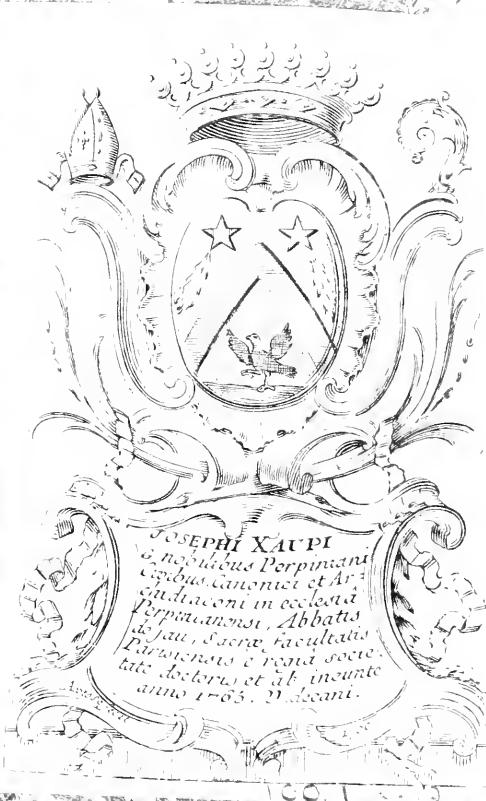 JOSEPHI XAUPI
è nobilibus Perpiniani
civibus Canonici et Ar-
chidiaconi in ecclesiâ
Perpinianensi, Abbatis
de Jau, Sacræ facultatis
Parisiensis è regiâ socie-
tate doctoris et ab ineunte
anno 1765. decani.